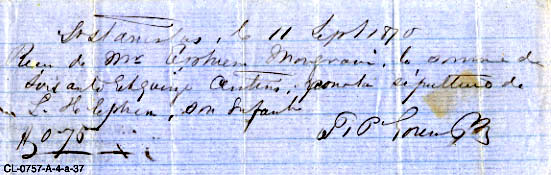 St Stanislas, le 11 Sept 1870
Recu de Mr Ephrem Mongrain, la somme de
soisante et quinze Centins, pour la sépulture de
L. H. Ephrem, son Enfant
$0-75
F X P
CL-0757-A-4-a-37